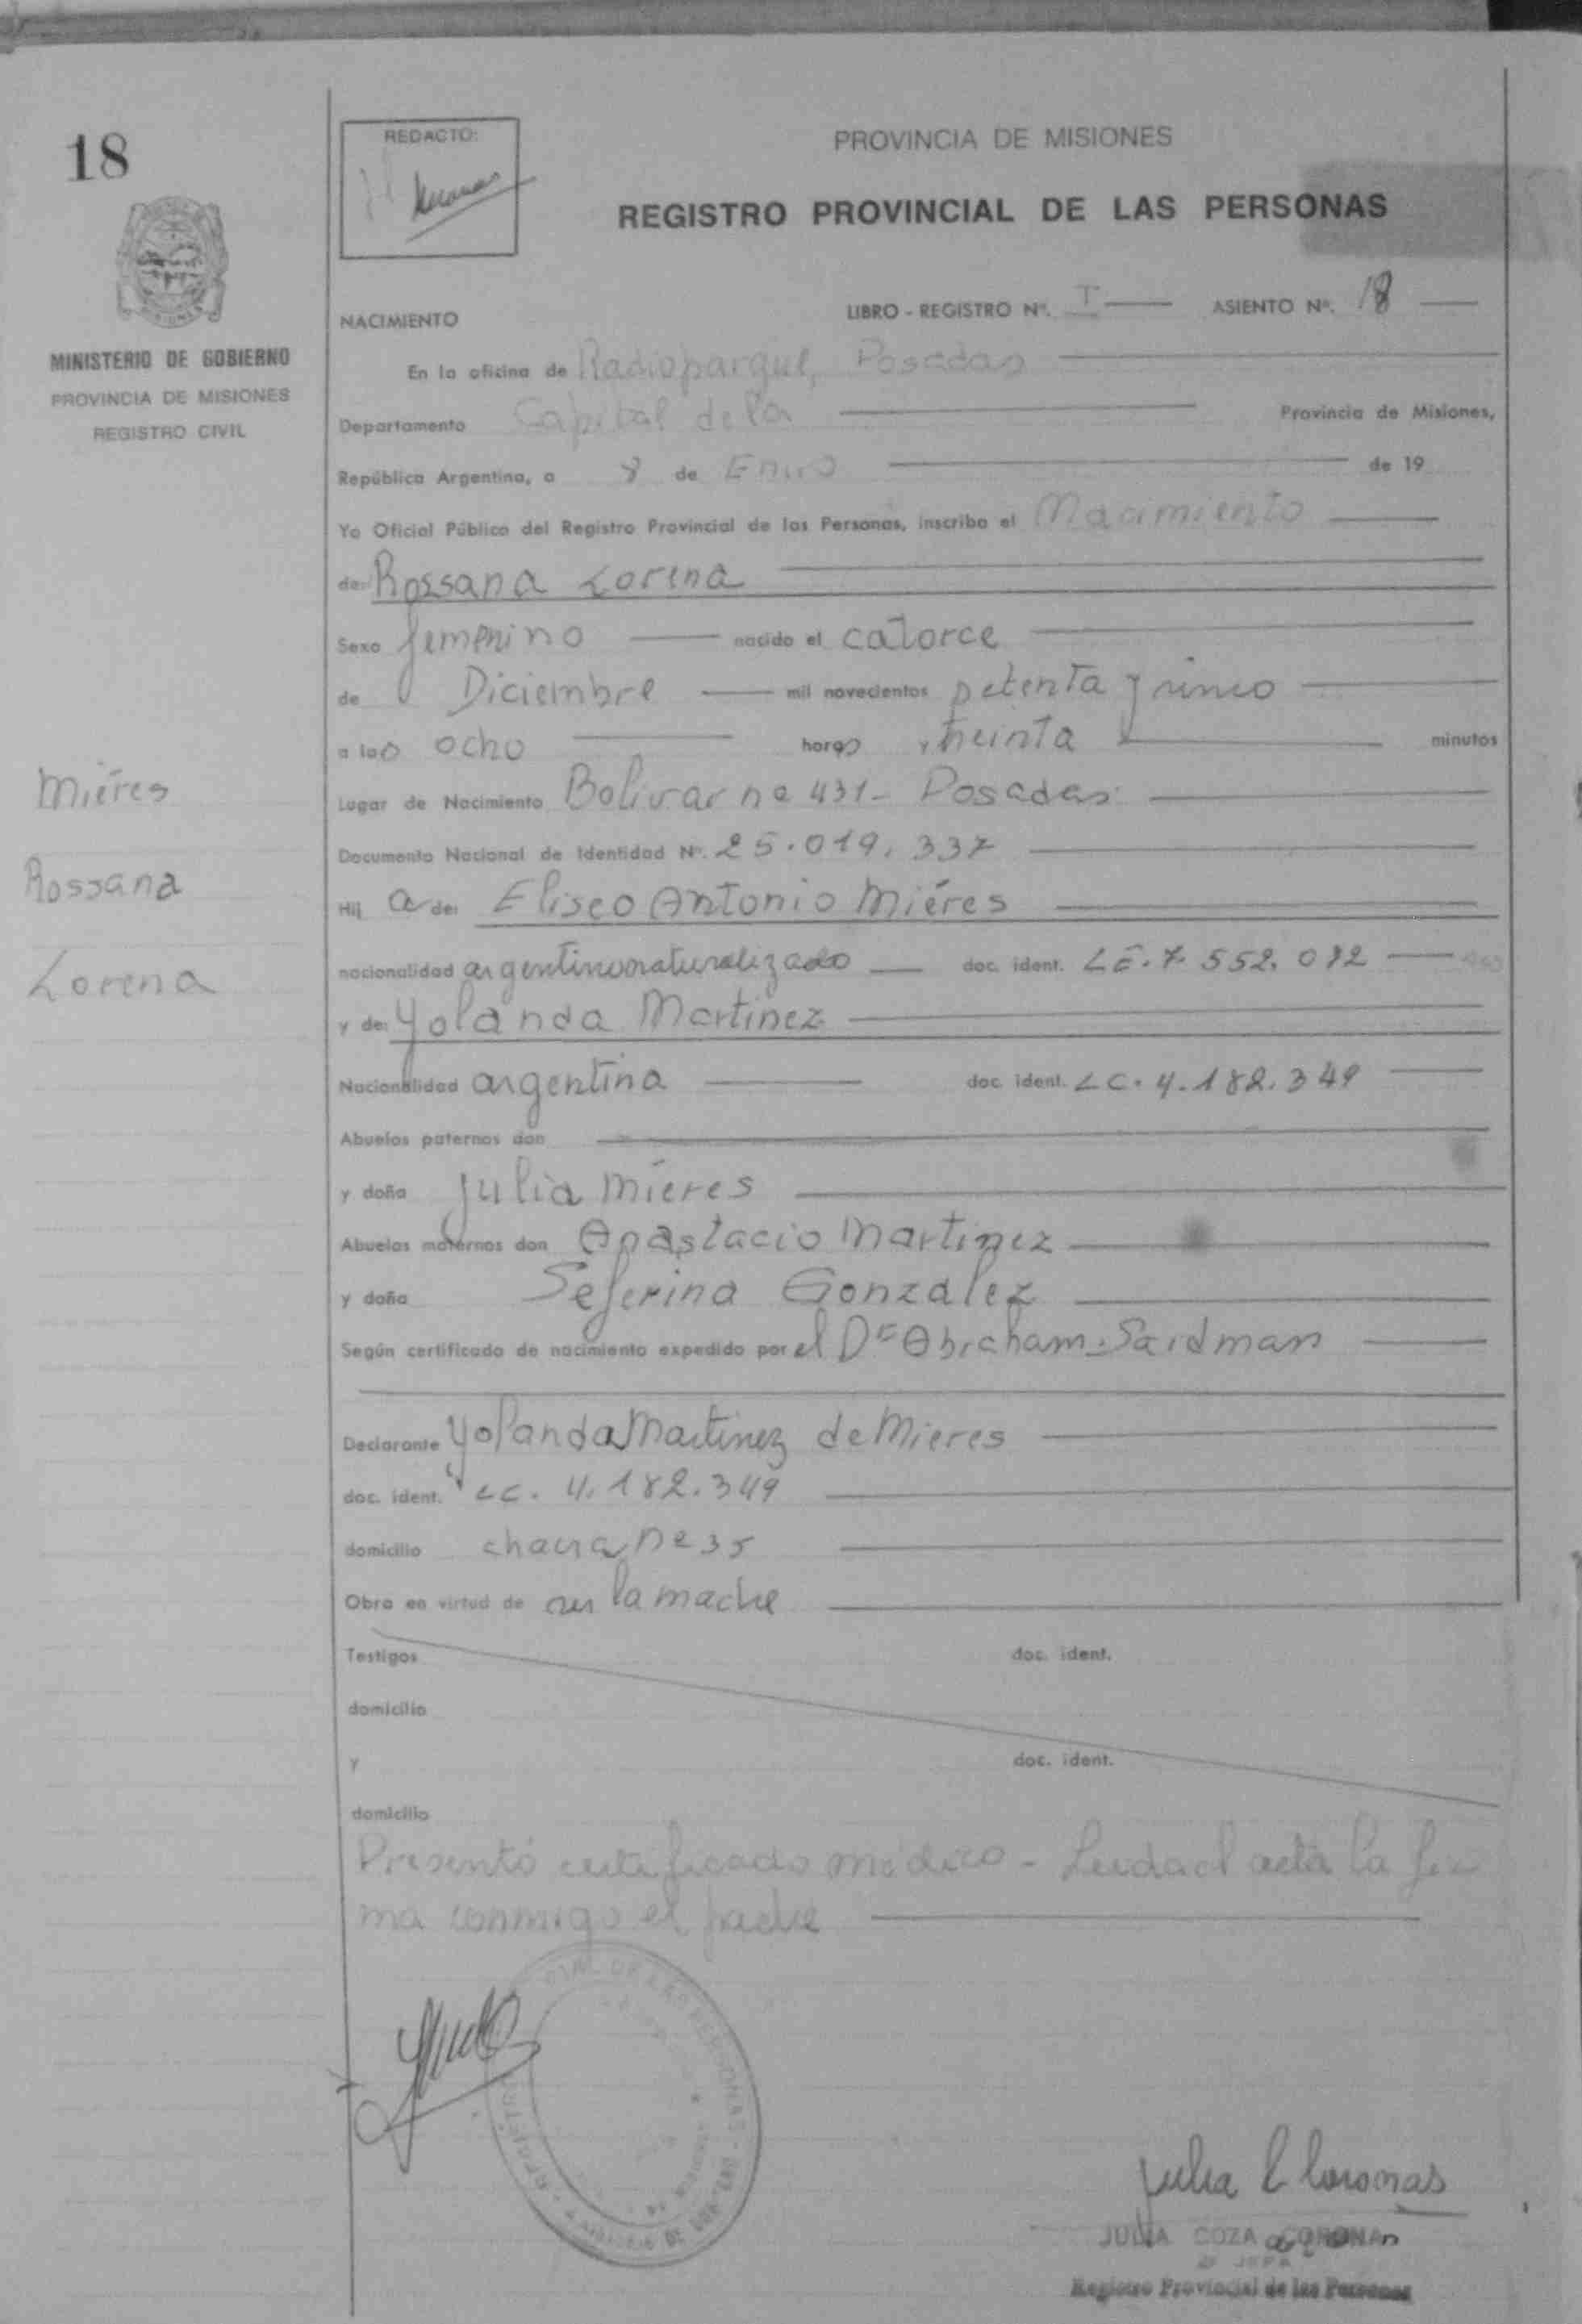 18
REDACTO:
PROVINCIA DE MISIONES
REGISTRO PROVINCIAL DE LAS PERSONAS
MINISTERIO DE GOBIERNO
PROVINCIA DE MISIONES
REGISTRO CIVIL
NACIMIENTO
LIBRO - REGISTRO Nº. I ASIENTO Nº. 18
En la oficina de Radioparque, Posadas
Departamento Capital de la Provincia de Misiones,
República Argentina, a 8 de Enero de 19
Yo Oficial Público del Registro Provincial de las Personas, inscribo el Nacimiento
de: Rossana Lorena
Sexo femenino nacido el catorce
de Diciembre mil novecientos setenta y cinco
a las ocho horas treinta minutos
Miéres
Lugar de Nacimiento Bolivar nº 431 - Posadas
Documento Nacional de Identidad Nº. 25.019.337
Rossana
Hij a de: Eliseo Antonio Miéres
Lorena
nacionalidad argentino naturalizado doc. ident. LE. 7.552.082
y de: Yolanda Martinez
Nacionalidad argentina doc. ident. LC. 4.182.349
Abuelos paternos don
y doña Julia Mieres
Abuelos maternos don Anastacio Martinez
y doña Seferina Gonzalez
Según certificado de nacimiento expedido por el Dr Abraham Saidman
Declarante Yolanda Martinez de Mieres
doc. ident. LC. 4.182.349
domicilio chacra nº 35
Obra en virtud de ser la madre
Testigos doc. ident.
domicilio
y doc. ident.
domicilio
Presentó certificado médico - Leida el acta la fir
ma conmigo el padre
JULIA COZA de CORONA
JEFA
Registro Provincial de las Personas